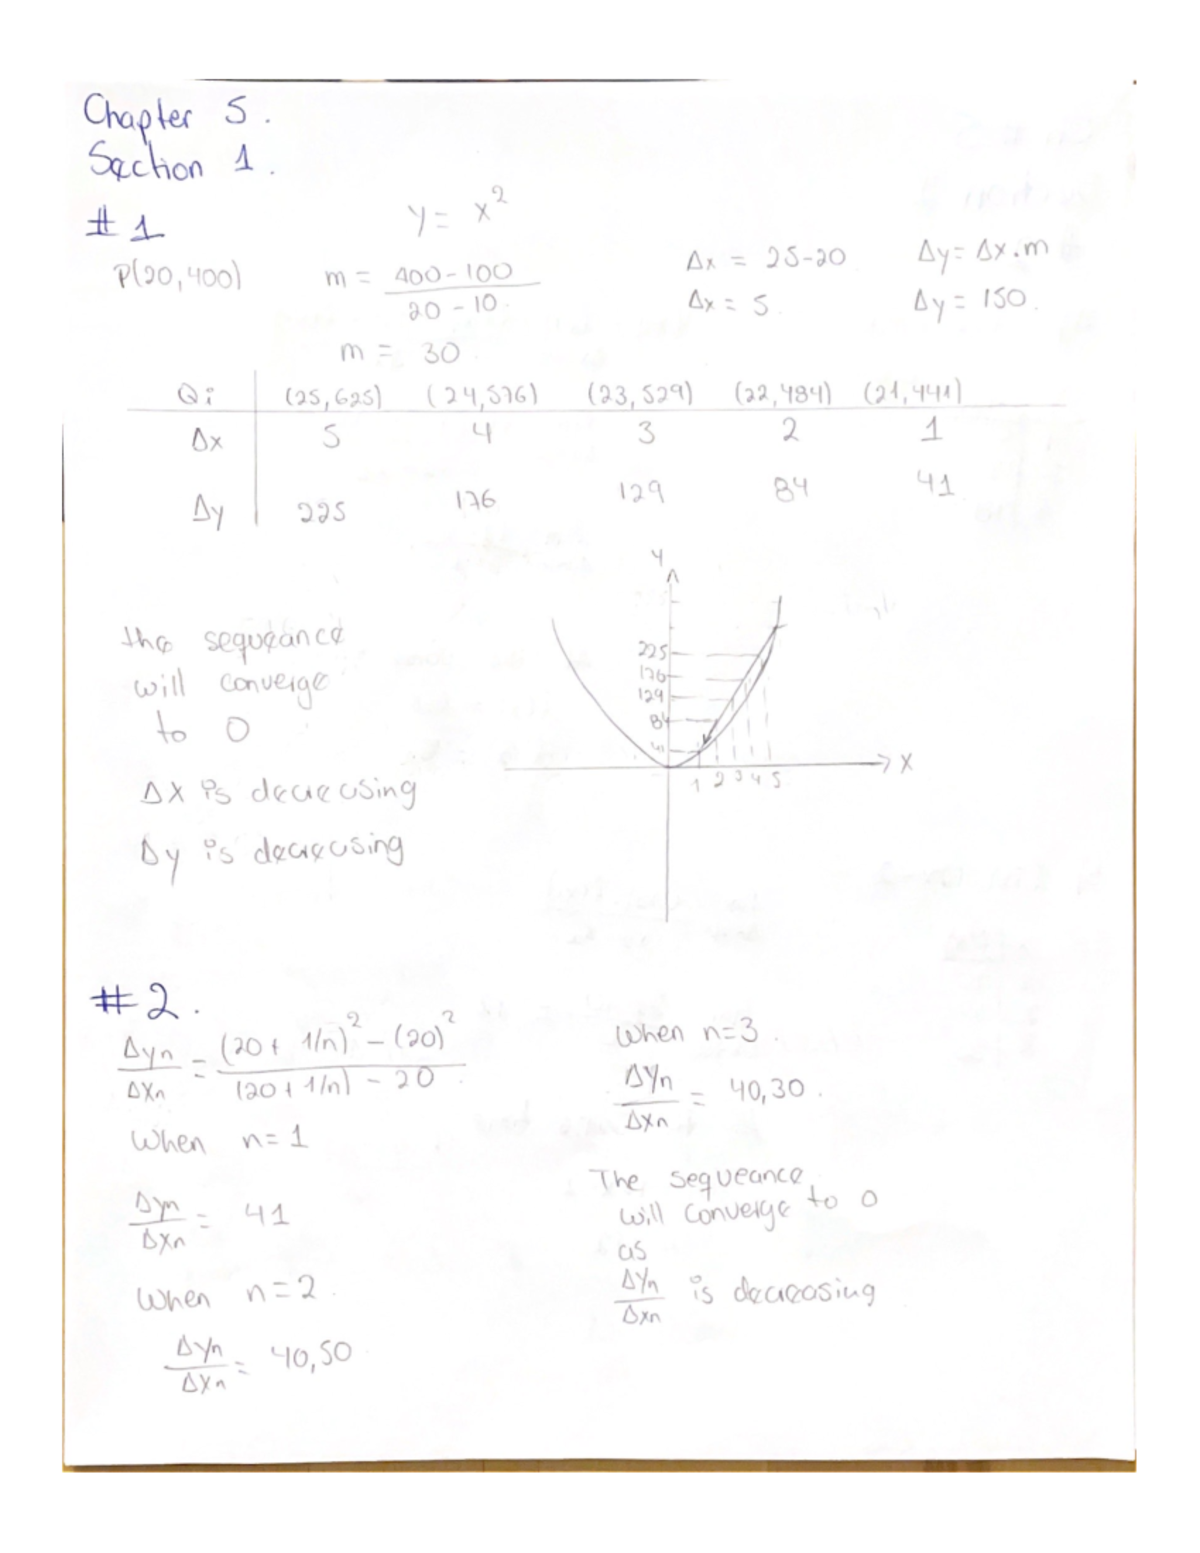 Chapter 5.
Section 1.
#1
y = x²
P(20,400)
m = 400-100 / 20-10.
m = 30.
Δx = 25-20
Δx = 5.
Δy = Δx.m
Δy = 150.
Qi (25,625) (24,576) (23,529) (22,484) (21,441)
Δx 5 4 3 2 1
Δy 225 176 129 84 41
the sequeance
will converge
to 0
Δx is decreasing
Δy is decreasing
y
225
176
129
84
41
1 2 3 4 5
x
#2.
Δyn / Δxn = (20 + 1/n)² - (20)² / (20 + 1/n) - 20
When n=1
Δyn / Δxn = 41
When n=2.
Δyn / Δxn = 40,50
When n=3.
Δyn / Δxn = 40,30.
The sequeance
will converge to 0
as
Δyn / Δxn is decreasing